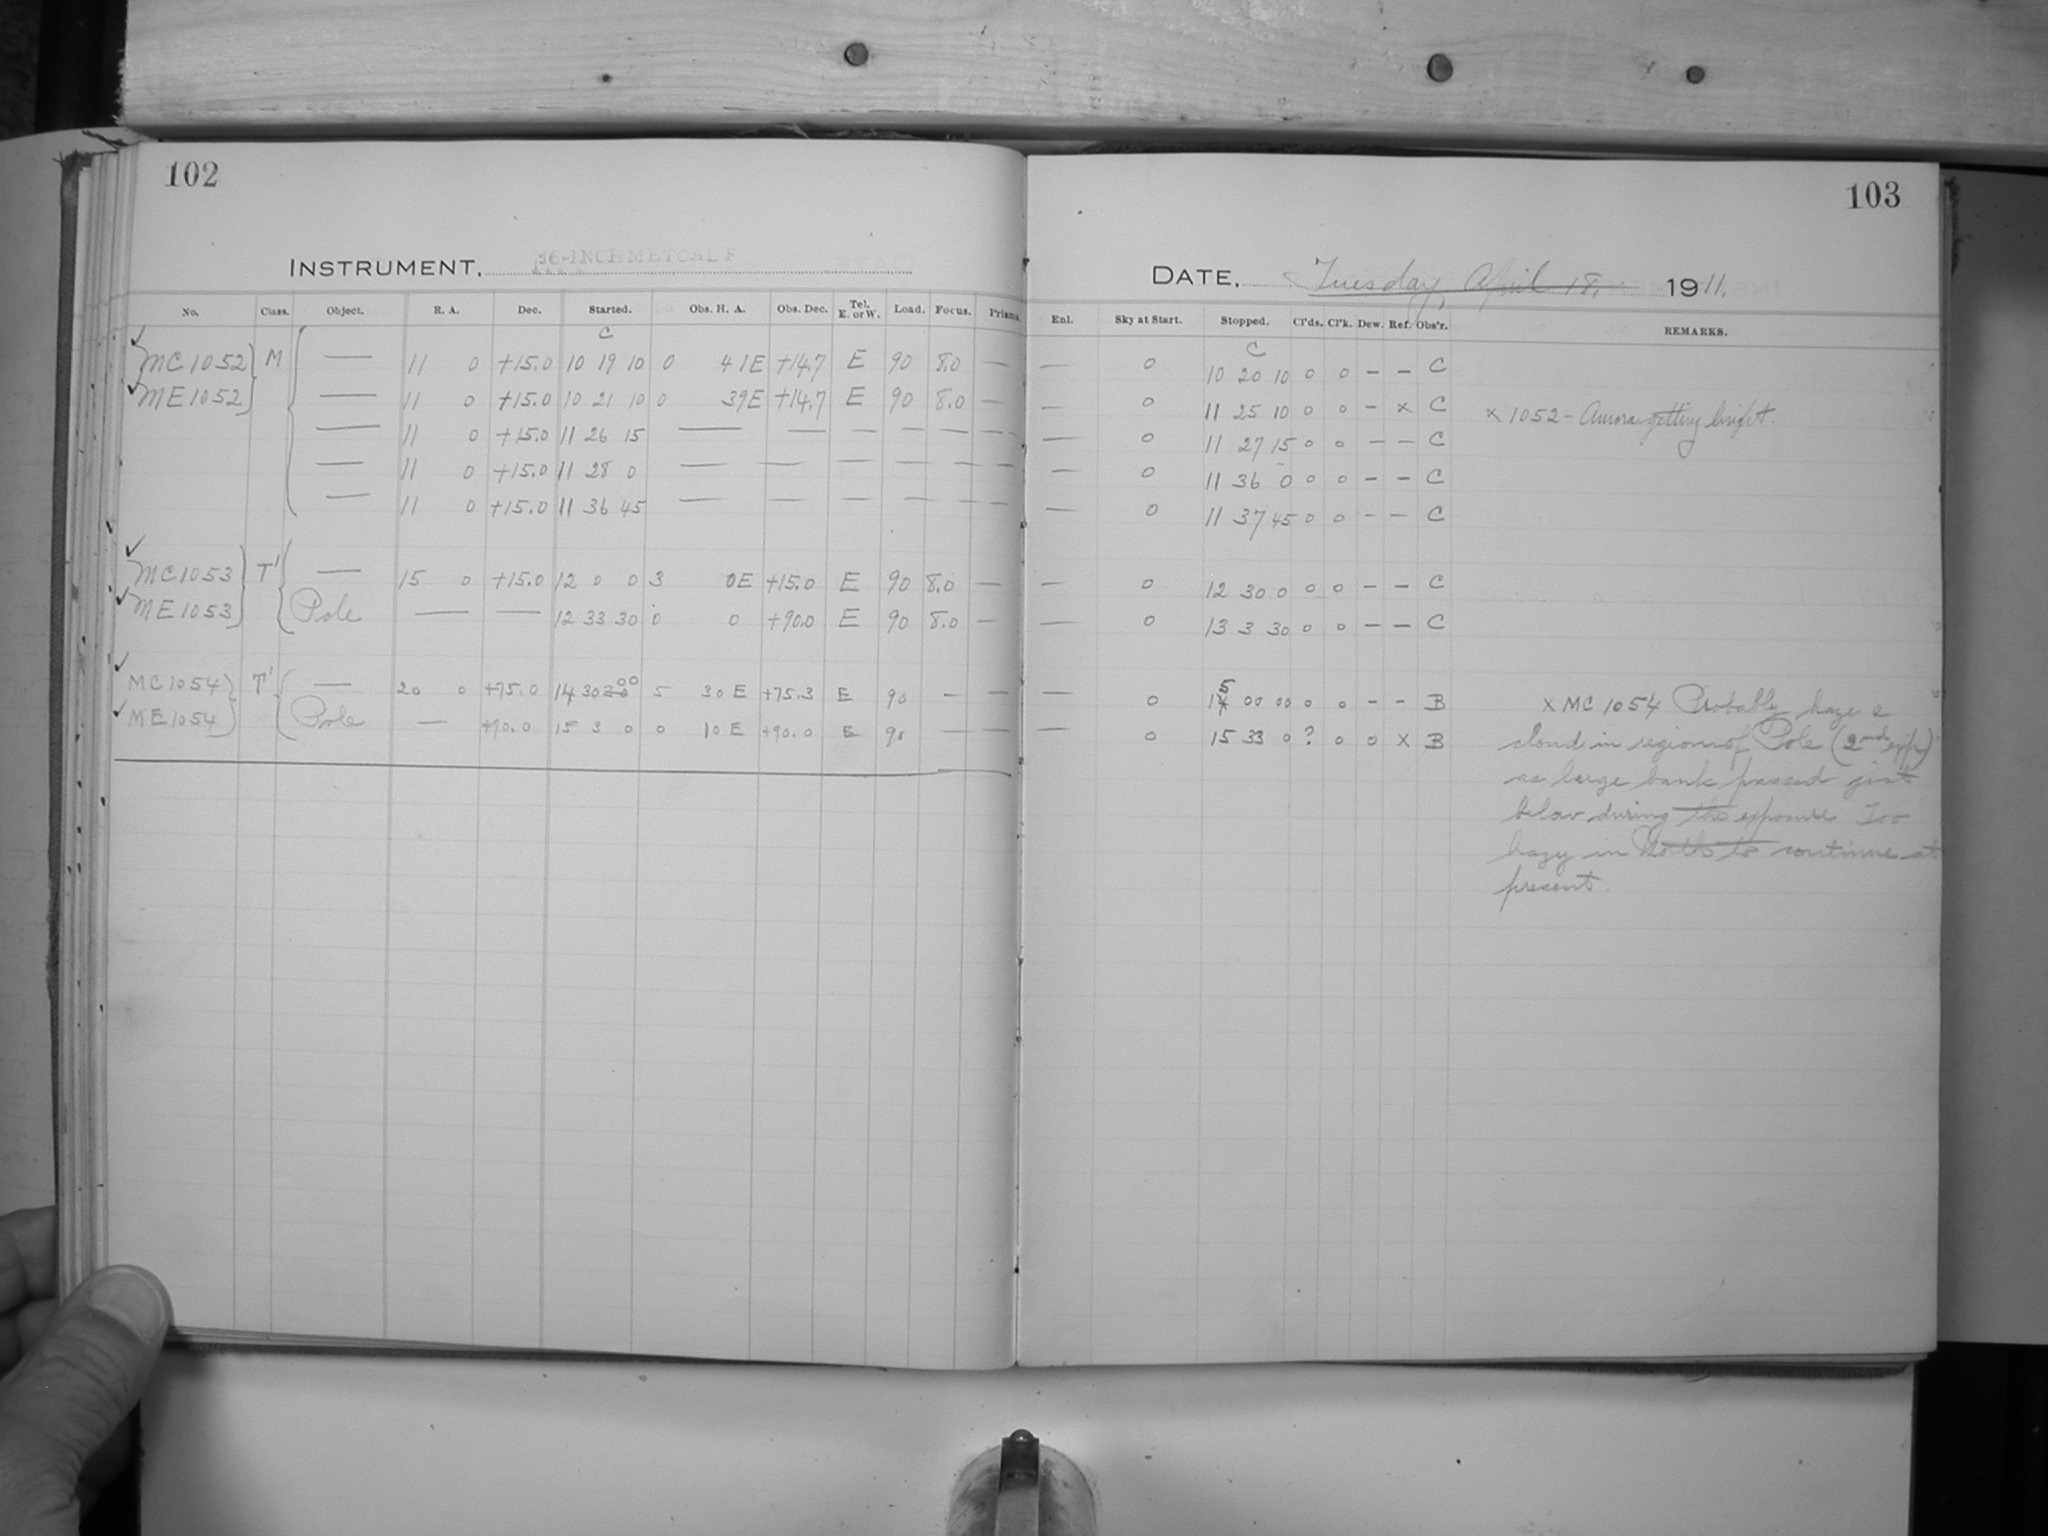 102
INSTRUMENT, 16-INCH METCALF
No. Class. Object. R. A. Dec. Started. Obs. H. A. Obs. Dec. Tel. E. or W. Load. Focus. Prisms.
C
MC 1052 M — 11 0 +15.0 10 19 10 0 41E +14.7 E 90 8.0 —
ME 1052 — 11 0 +15.0 10 21 10 0 39E +14.7 E 90 8.0 —
— 11 0 +15.0 11 26 15 — — — — — —
— 11 0 +15.0 11 28 0 — — — — — —
— 11 0 +15.0 11 36 45 — — — — — —
MC 1053 T' — 15 0 +15.0 12 0 0 3 0E +15.0 E 90 8.0 —
ME 1053 Pole — — 12 33 30 0 0 +90.0 E 90 8.0 —
MC 1054 T' — 20 0 +75.0 14 30 30 00 5 30 E +75.3 E 90 — —
ME 1054 Pole — +90.0 15 3 0 0 10 E +90.0 E 90 — —
103
DATE, Tuesday, April 18, 1911.
Enl. Sky at Start. Stopped. Cl'ds. Cl'k. Dew. Ref. Obs'r. REMARKS.
C
— 0 10 20 10 0 0 – – C
— 0 11 25 10 0 0 – x C x 1052 – Aurora getting bright.
— 0 11 27 15 0 0 – – C
— 0 11 36 0 0 0 – – C
— 0 11 37 45 0 0 – – C
— 0 12 30 0 0 0 – – C
— 0 13 3 30 0 0 – – C
— 0 15 00 00 0 0 – – B x MC 1054 Probably haze &
— 0 15 33 0 ? 0 0 x B cloud in region of Pole (2nd exp)
as large bank passed just
below during the exposure Too
hazy in North to continue at
present.